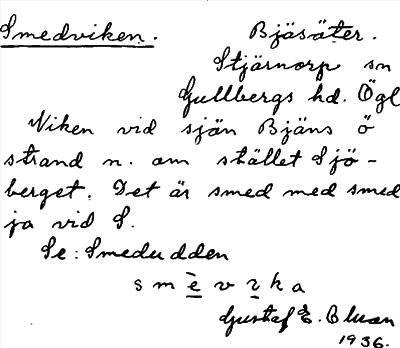 Smedviken. Bjäsäter.
Stjärnorp sn
Gullbergs hd. Ögl
Viken vid sjön Bjäns ö
strand n. om stället Sjö-
berget. Det är smed med smed
ja vid S.
Se: Smedudden
s m è v ɩ k a
Gustaf E. Olsson
1936.